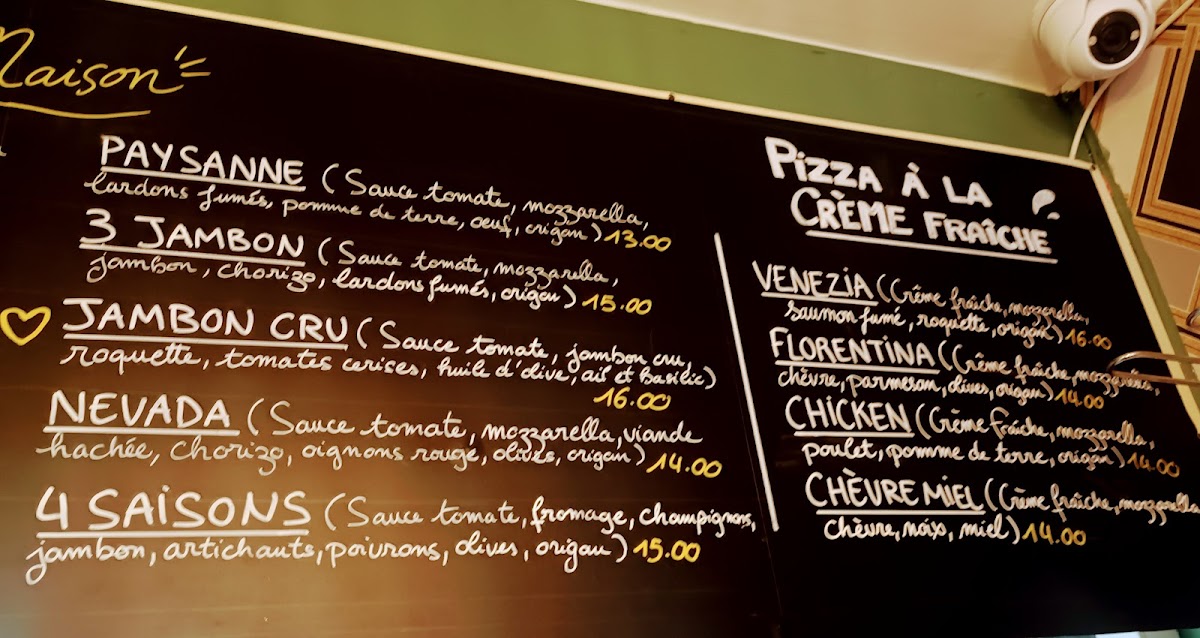 Maison
PAYSANNE (Sauce tomate, mozzarella,
lardons fumés, pomme de terre, oeuf, origan) 13.00
3 JAMBON (Sauce tomate, mozzarella,
jambon, chorizo, lardons fumés, origan) 15.00
JAMBON CRU (Sauce tomate, jambon cru,
roquette, tomates cerises, huile d'olive, ail et basilic)
16.00
NEVADA (Sauce tomate, mozzarella, viande
hachée, chorizo, oignons rouge, olives, origan) 14.00
4 SAISONS (Sauce tomate, fromage, champignons,
jambon, artichauts, poivrons, olives, origan) 15.00
PIZZA À LA
CRÈME FRAÎCHE
VENEZIA (Crême fraîche, mozzarella,
saumon fumé, roquette, origan) 16.00
FLORENTINA (Crême fraîche, mozzarella,
chèvre, parmesan, olives, origan) 14.00
CHICKEN (Crème fraîche, mozzarella,
poulet, pomme de terre, origan) 14.00
CHÈVRE MIEL (Crème fraîche, mozzarella
chèvre, noix, miel) 14.00